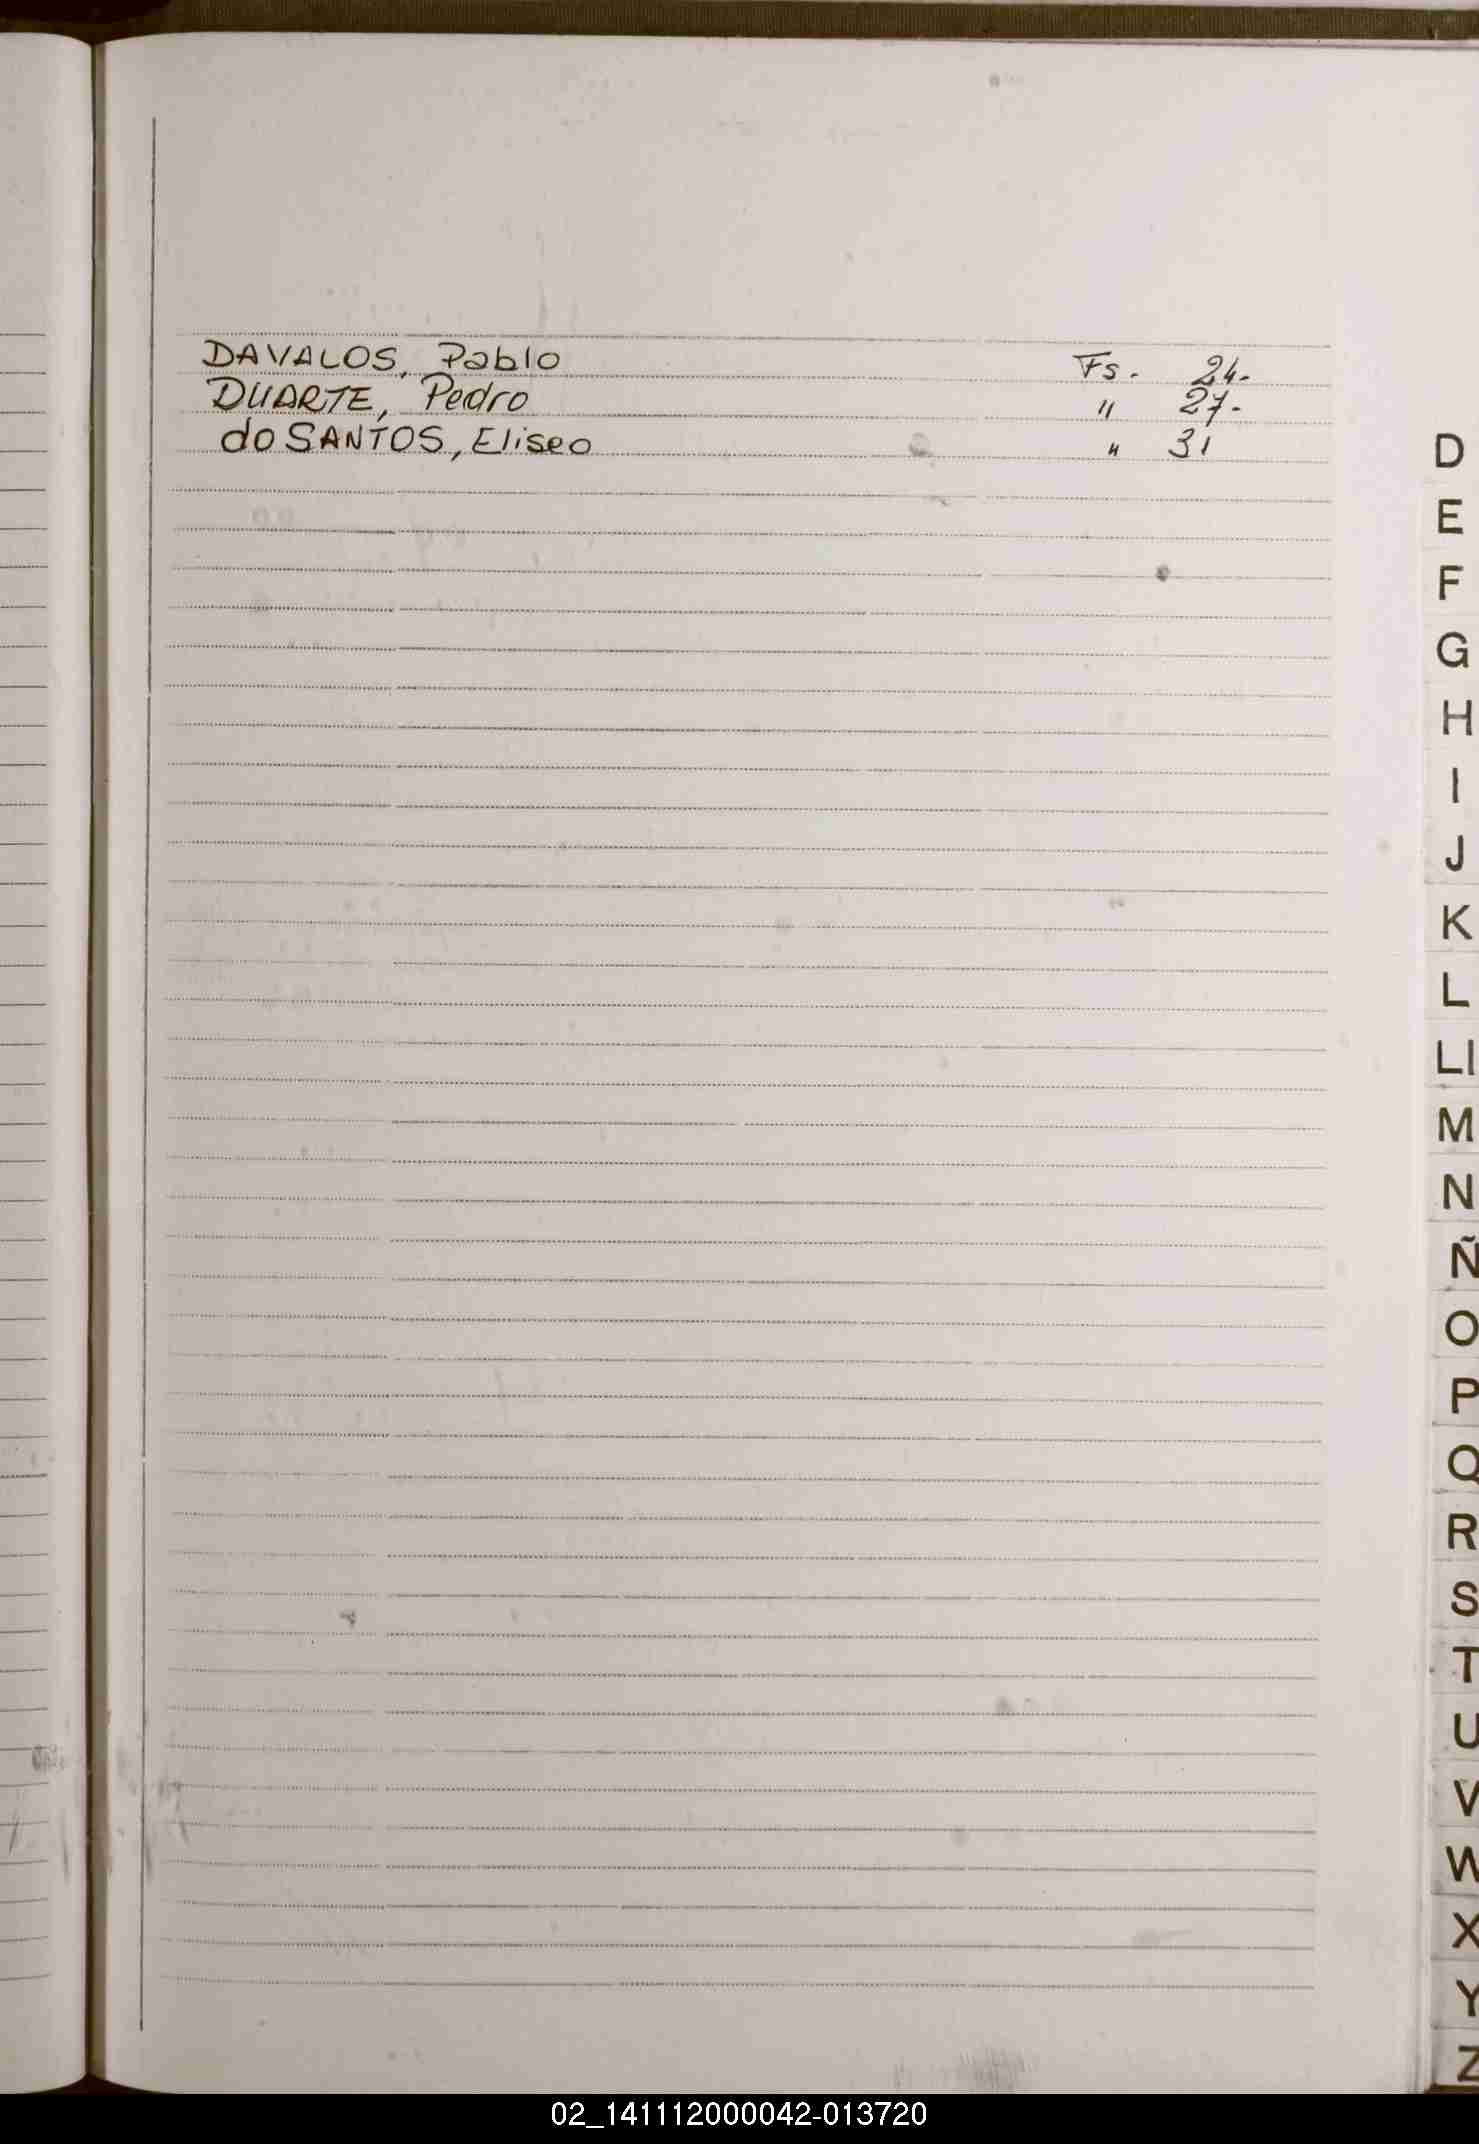 DAVALOS, Pablo Fs. 24.
DUARTE, Pedro " 27.
do SANTOS, Eliseo " 31
D
E
F
G
H
I
J
K
L
Ll
M
N
Ñ
O
P
Q
R
S
T
U
V
W
X
Y
Z
02_141112000042-013720